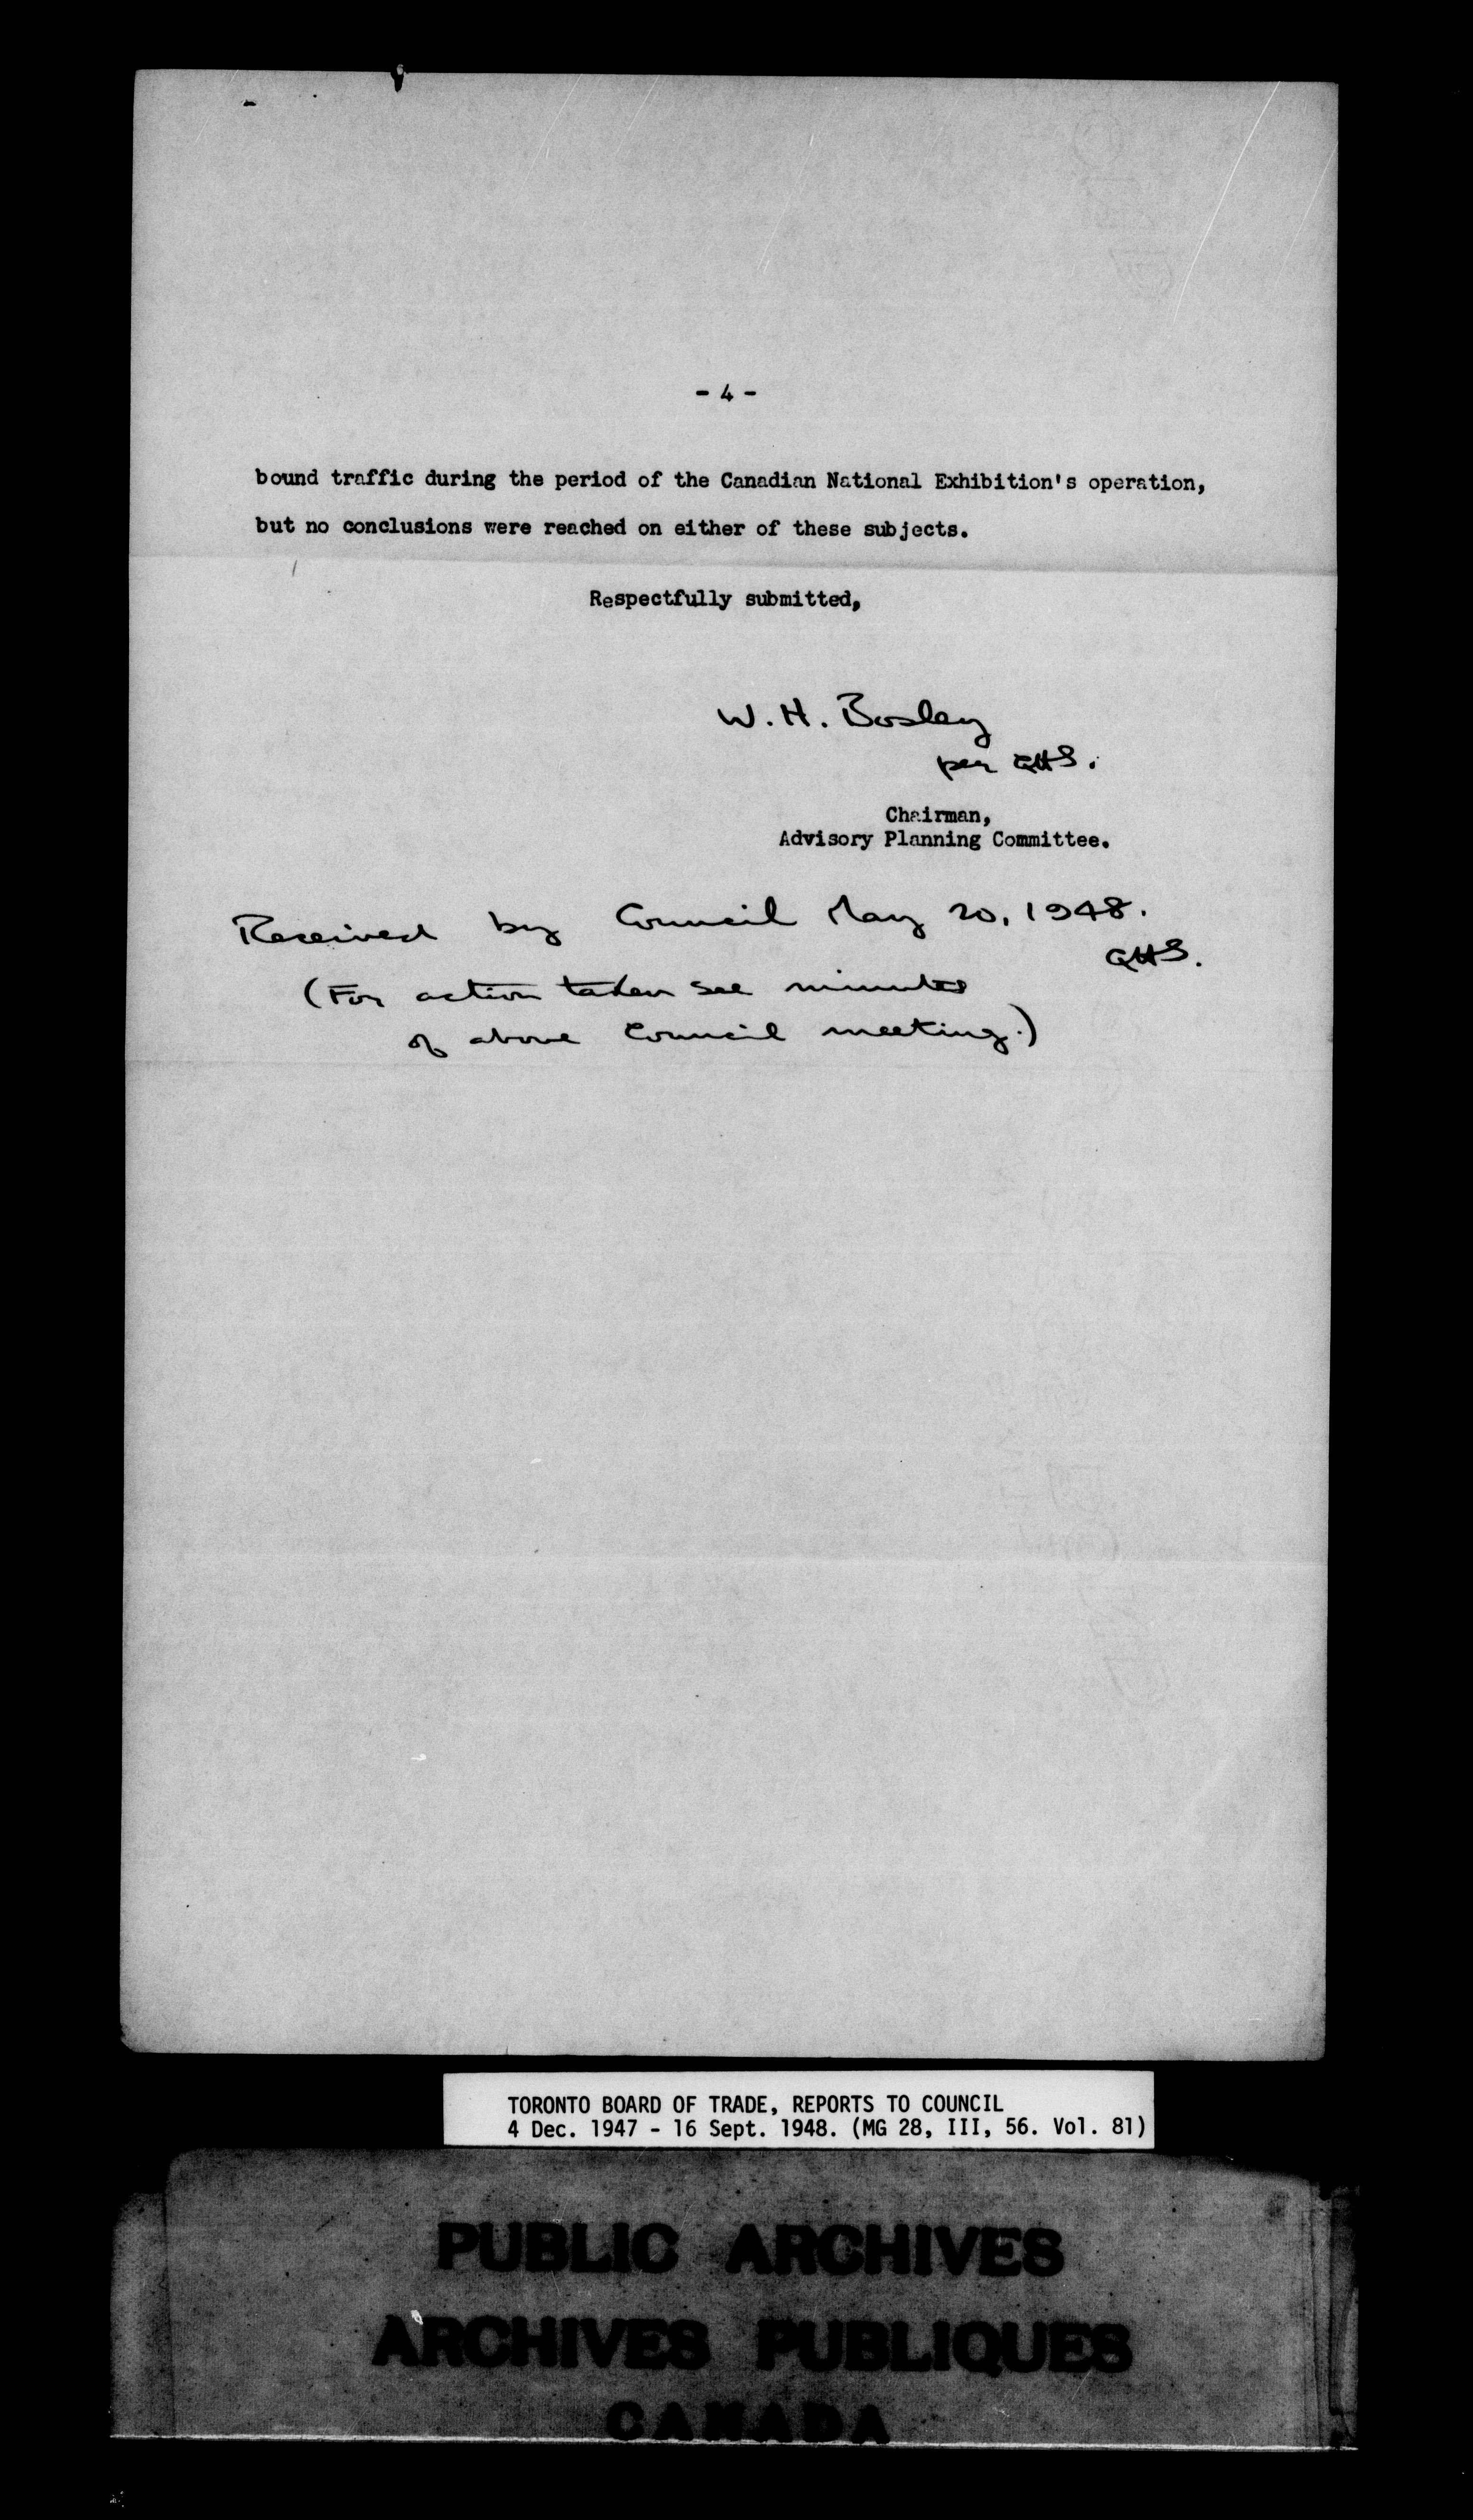 - 4 -
bound traffic during the period of the Canadian National Exhibition's operation,
but no conclusions were reached on either of these subjects.
Respectfully submitted,
W. H. Bosley
per GHS.
Chairman,
Advisory Planning Committee.
Received by Council May 20, 1948.
GHS.
(For action taken see minutes
of above Council meeting.)
TORONTO BOARD OF TRADE, REPORTS TO COUNCIL
4 Dec. 1947 - 16 Sept. 1948. (MG 28, III, 56. Vol. 81)
PUBLIC ARCHIVES
ARCHIVES PUBLIQUES
CANADA